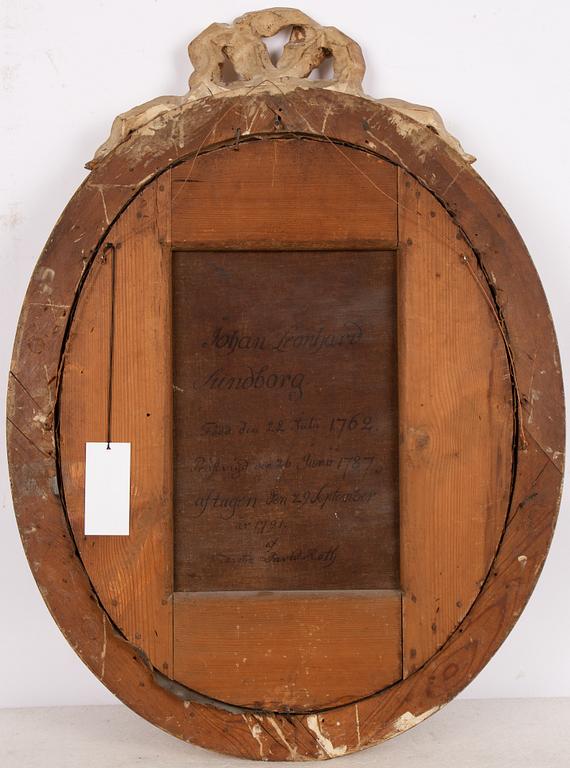 Johan Leonhard
Sundborg
Född den 22 Julii 1762.
Prestvigd den 26 Junii 1787.
aftagen den 29 September
år 1791.
af
David Roth